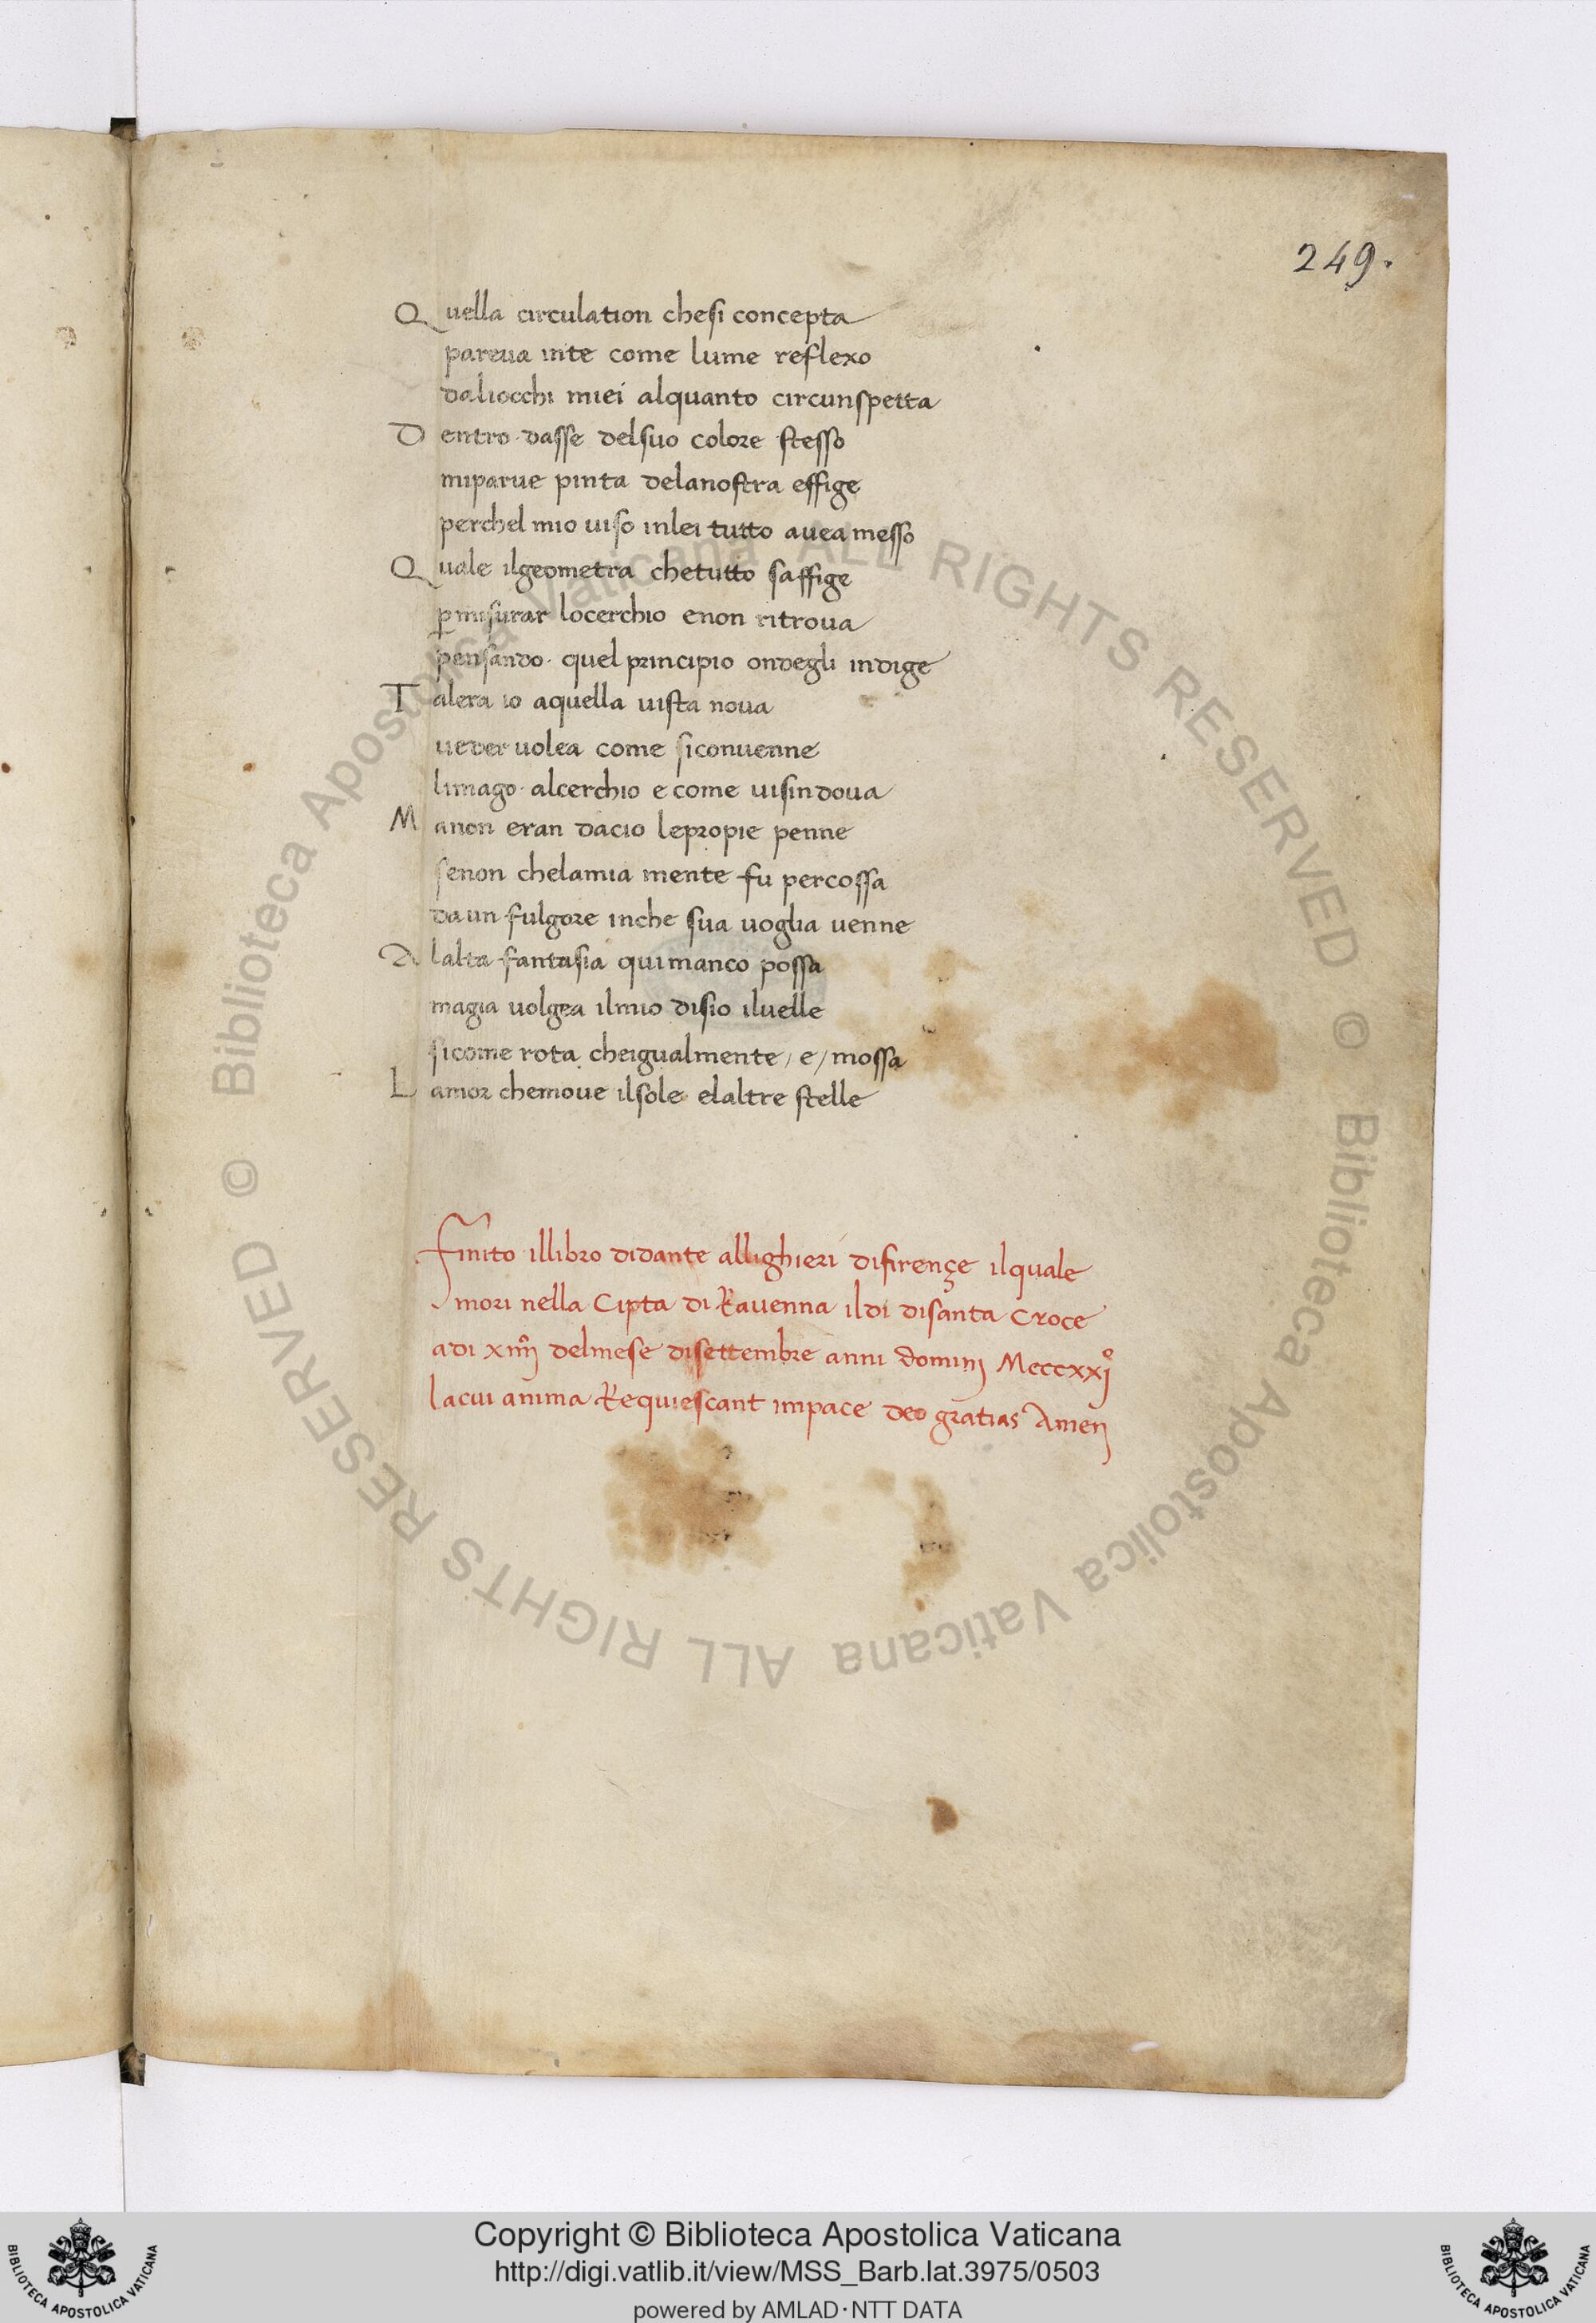 249.
Quella circulation chesi concepta
pareua inte come lume reflexo
daliocchi miei alquanto circunspetta
Dentro dasse delsuo colore stesso
miparue pinta delanostra effige
perchel mio uiso inlei tutto auea messo
Quale ilgeometra chetutto saffige
ꝑmisurar locerchio enon ritroua
pensando· quel principio ondegli indige
Talera io aquella uista noua
ueder uolea come siconuenne
limago· alcerchio e come uisindoua
Manon eran dacio lepropie penne
senon chelamia mente fu percossa
daun fulgore inche sua uoglia uenne
Alalta fantasia qui manco possa
magia uolgea ilmio disio iluelle
sicome rota cheigualmente / e / mossa
Lamor chemoue ilsole elaltre stelle
Finito illibro didante allighieri difirençe ilquale
mori nella Cipta di Rauenna ildi disanta Croce
adi delmese disettembre anni domini Mcccxxjº
lacui anima Requiescant impace deo gratias Amen
Biblioteca Apostolica Vaticana ALL RIGHTS RESERVED © Biblioteca Apostolica Vaticana ALL RIGHTS RESERVED ©
BIBLIOTECA APOSTOLICA VATICANA
Copyright © Biblioteca Apostolica Vaticana
http://digi.vatlib.it/view/MSS_Barb.lat.3975/0503
powered by AMLAD·NTT DATA
BIBLIOTECA APOSTOLICA VATICANA